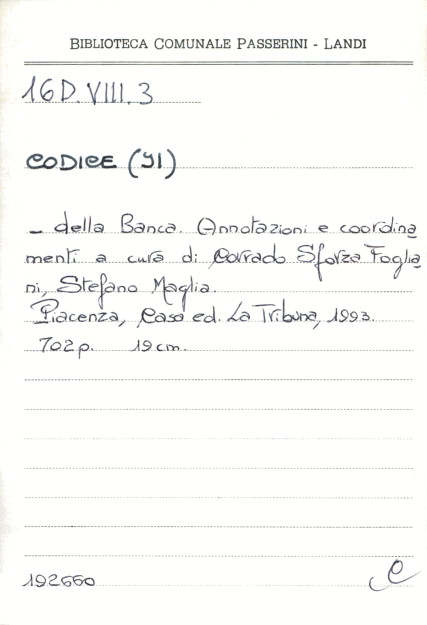 BIBLIOTECA COMUNALE PASSERINI - LANDI
16D.VIII.3
CODICE (JI)
- della Banca. Annotazioni e coordina
menti a cura di Corrado Sforza Foglia
ni, Stefano Maglia.
Piacenza, Casa ed. La Tribuna, 1993.
702 p. 19 cm.
192660
C